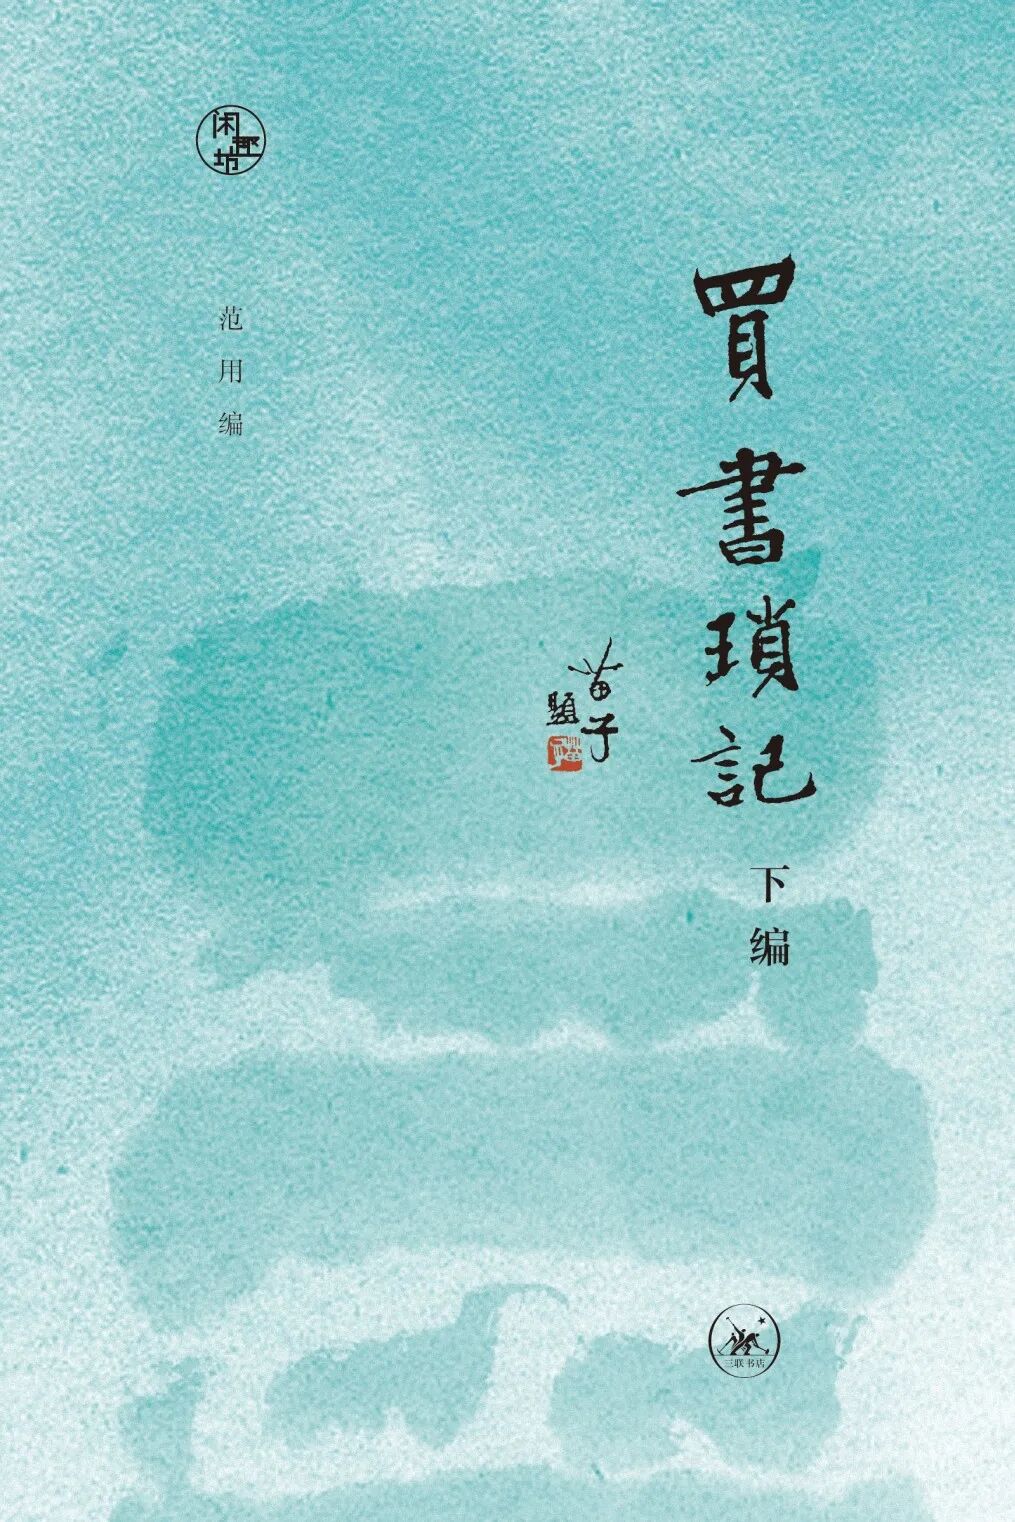 閑趣坊
范用编
買書瑣記
下编
苗子
題
三联书店